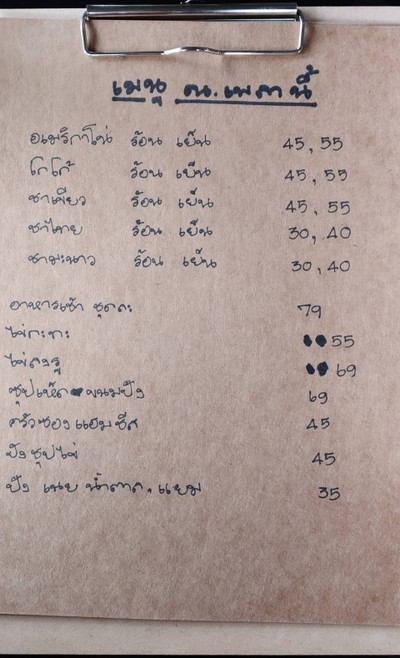 เมนู ณ.เพลานี้
อเมริกาโน่ ร้อน เย็น 45, 55
โกโก้ ร้อน เย็น 45, 55
ชาเขียว ร้อน เย็น 45, 55
ชาไทย ร้อน เย็น 30, 40
ชามะนาว ร้อน เย็น 30, 40
อาหารเช้า ชุดละ 79
ไข่กะทะ 55
69
ซุปเห็ด ขนมปัง 69
ครัวซอง แฮม ชีส 45
ปังชุปไข่ 45
ปัง เนย น้ำตาล, แยม 35